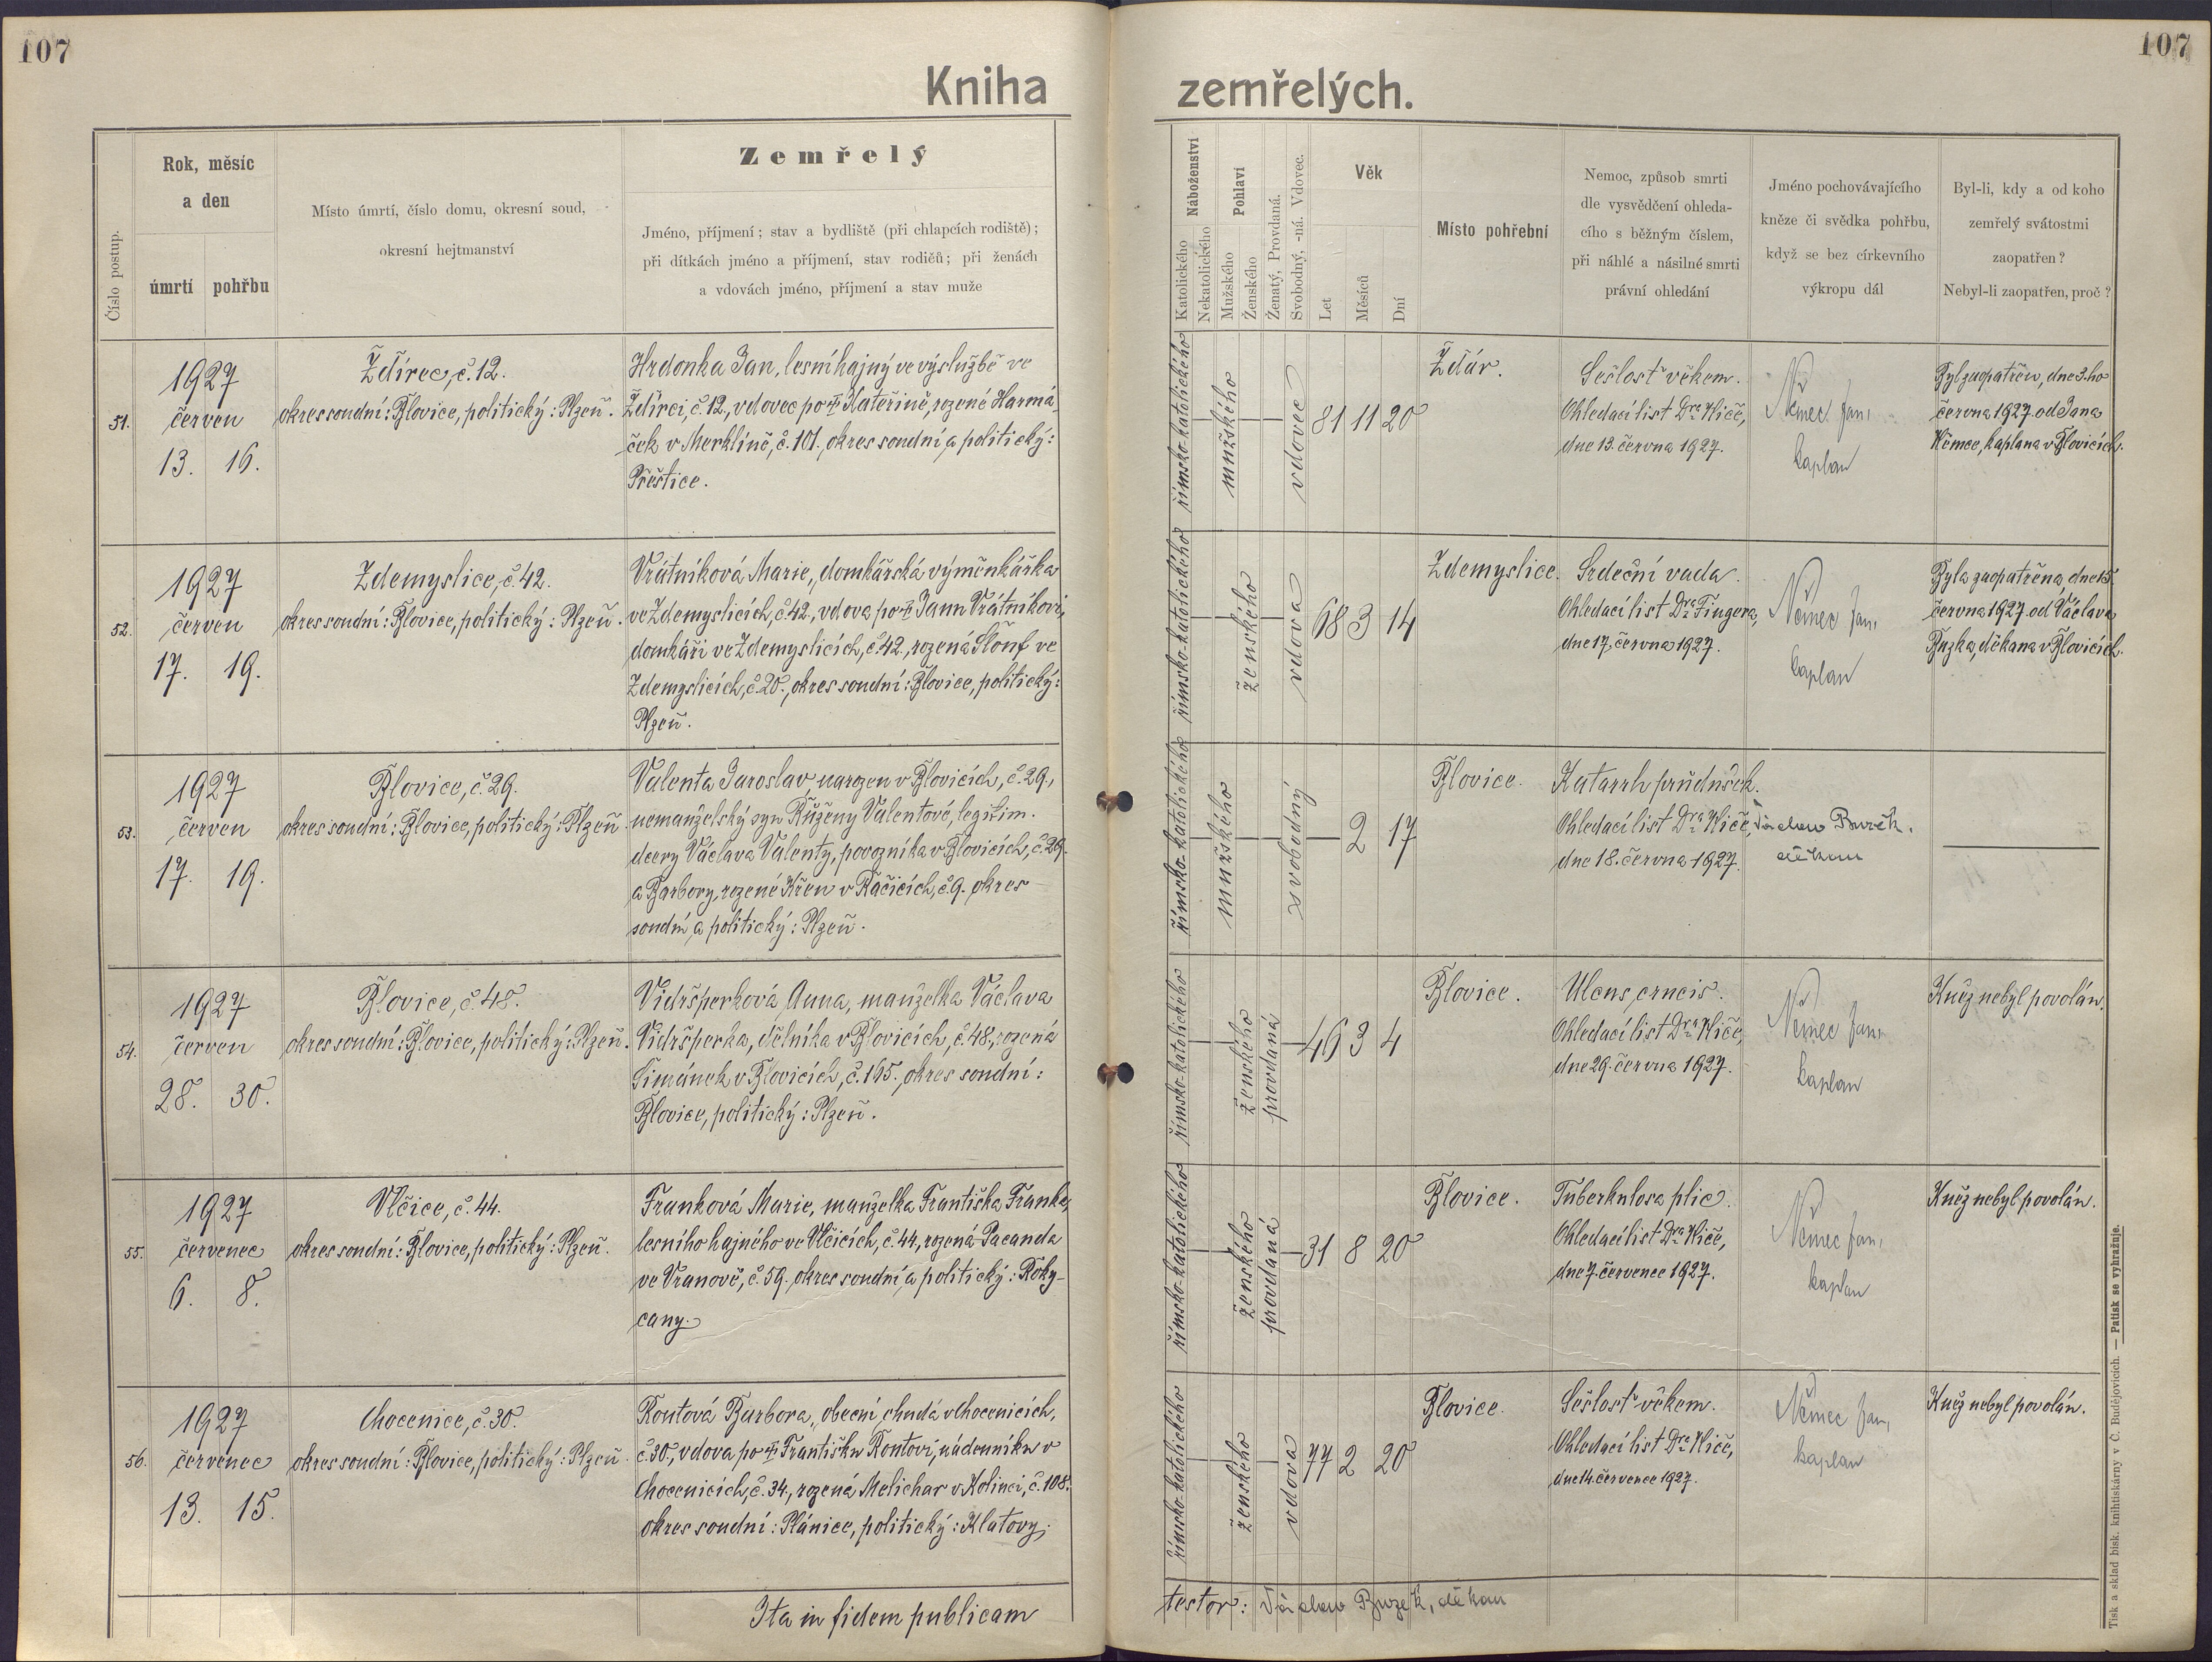 107
107
Kniha zemřelých.
Číslo postup.
Rok, měsíc
a den
úmrtí
pohřbu
Místo úmrtí, číslo domu, okresní soud,
okresní hejtmanství
Zemřelý
Jméno, příjmení; stav a bydliště (při chlapcích rodiště);
při dítkách jméno a příjmení, stav rodičů; při ženách
a vdovách jméno, příjmení a stav muže
Náboženství
Katolického
Nekatolického
Pohlaví
Mužského
Ženského
Ženatý, Provdaná.
Svobodný, -ná. Vdovec.
Věk
Let
Měsíců
Dní
Místo pohřební
Nemoc, způsob smrti
dle vysvědčení ohleda-
cího s běžným číslem,
při náhlé a násilné smrti
právní ohledání
Jméno pochovávajícího
kněze či svědka pohřbu,
když se bez církevního
výkropu dál
Byl-li, kdy a od koho
zemřelý svátostmi
zaopatřen?
Nebyl-li zaopatřen, proč?
51.
1927
červen
13. 16.
Ždírec, č. 12.
okres soudní: Blovice, politický: Plzeň.
Hrdonka Jan, lesní hajný ve výslužbě ve
Ždírci, č. 12., vdovec po † Kateřině, rozené Harmá-
ček v Merklíně, č. 101., okres soudní a politický:
Přeštice.
římsko-katolického
mužského
vdovec
81 11 20
Ždár.
Sešlost věkem.
Ohledací list Dra Kliče,
dne 13. června 1927.
Němec Jan,
kaplan
Byl zaopatřen, dne 3.ho
června 1927. od Jana
Němce, kaplana v Blovicích.
52.
1927
červen
17. 19.
Zdemyslice, č. 42.
okres soudní: Blovice, politický: Plzeň.
Vrátníková Marie, domkářská výměnkářka
ve Zdemyslicích, č. 42., vdova po † Janu Vrátníkovi,
domkáři ve Zdemyslicích, č. 42., rozená Šlouf ve
Zdemyslicích, č. 20., okres soudní: Blovice, politický:
Plzeň.
římsko-katolického
ženského
vdova
68 3 14
Zdemyslice.
Srdeční vada.
Ohledací list Dra Fingera,
dne 17. června 1927.
Němec Jan,
kaplan
Byla zaopatřena, dne 15.
června 1927. od Václava
Buzka, děkana v Blovicích.
53.
1927
červen
17. 19.
Blovice, č. 29.
okres soudní: Blovice, politický: Plzeň.
Valenta Jaroslav, narozen v Blovicích, č. 29.,
nemanželský syn Růženy Valentové, legitim.
dcery Václava Valenty, povozníka v Blovicích, č. 29.
a Barbory, rozené Křen v Račicích, č. 9. okres
soudní a politický: Plzeň.
římsko-katolického
mužského
svobodný
2 17
Blovice.
Katarrh průdušek.
Ohledací list Dra Kliče,
dne 18. června 1927.
Václav Buzek,
děkan
54.
1927
červen
28. 30.
Blovice, č. 48.
okres soudní: Blovice, politický: Plzeň.
Vidršperková Anna, manželka Václava
Vidršperka, dělníka v Blovicích, č. 48., rozená
Šimánek v Blovicích, č. 165. okres soudní:
Blovice, politický: Plzeň.
římsko-katolického
ženského
provdaná
46 3 4
Blovice.
Ulcus cruris.
Ohledací list Dra Kliče,
dne 29. června 1927.
Němec Jan,
kaplan
Kněz nebyl povolán.
55.
1927
červenec
6. 8.
Vlčice, č. 44.
okres soudní: Blovice, politický: Plzeň.
Franková Marie, manželka Františka Franka,
lesního hajného ve Vlčicích, č. 44., rozená Pacanda
ve Vranově, č. 59. okres soudní a politický: Roky-
cany.
římsko-katolického
ženského
provdaná
31 8 20
Blovice.
Tuberkulosa plic.
Ohledací list Dra Kliče,
dne 7. července 1927.
Němec Jan,
kaplan
Kněz nebyl povolán.
56.
1927
červenec
13. 15.
Chocenice, č. 30.
okres soudní: Blovice, politický: Plzeň.
Routová Barbora, obecní chudá v Chocenicích,
č. 30., vdova po † Františku Routovi, nádenníku v
Chocenicích, č. 34., rozená Melichar v Kolinci, č. 108.
okres soudní: Plánice, politický: Klatovy.
římsko-katolického
ženského
vdova
77 2 20
Blovice.
Sešlost věkem.
Ohledací list Dra Kliče,
dne 14. července 1927.
Němec Jan,
kaplan
Kněz nebyl povolán.
Ita in fidem publicam
testor: Václav Buzek, děkan
Tisk a sklad bisk. knihtiskárny v Č. Budějovicích. — Patisk se vyhražuje.